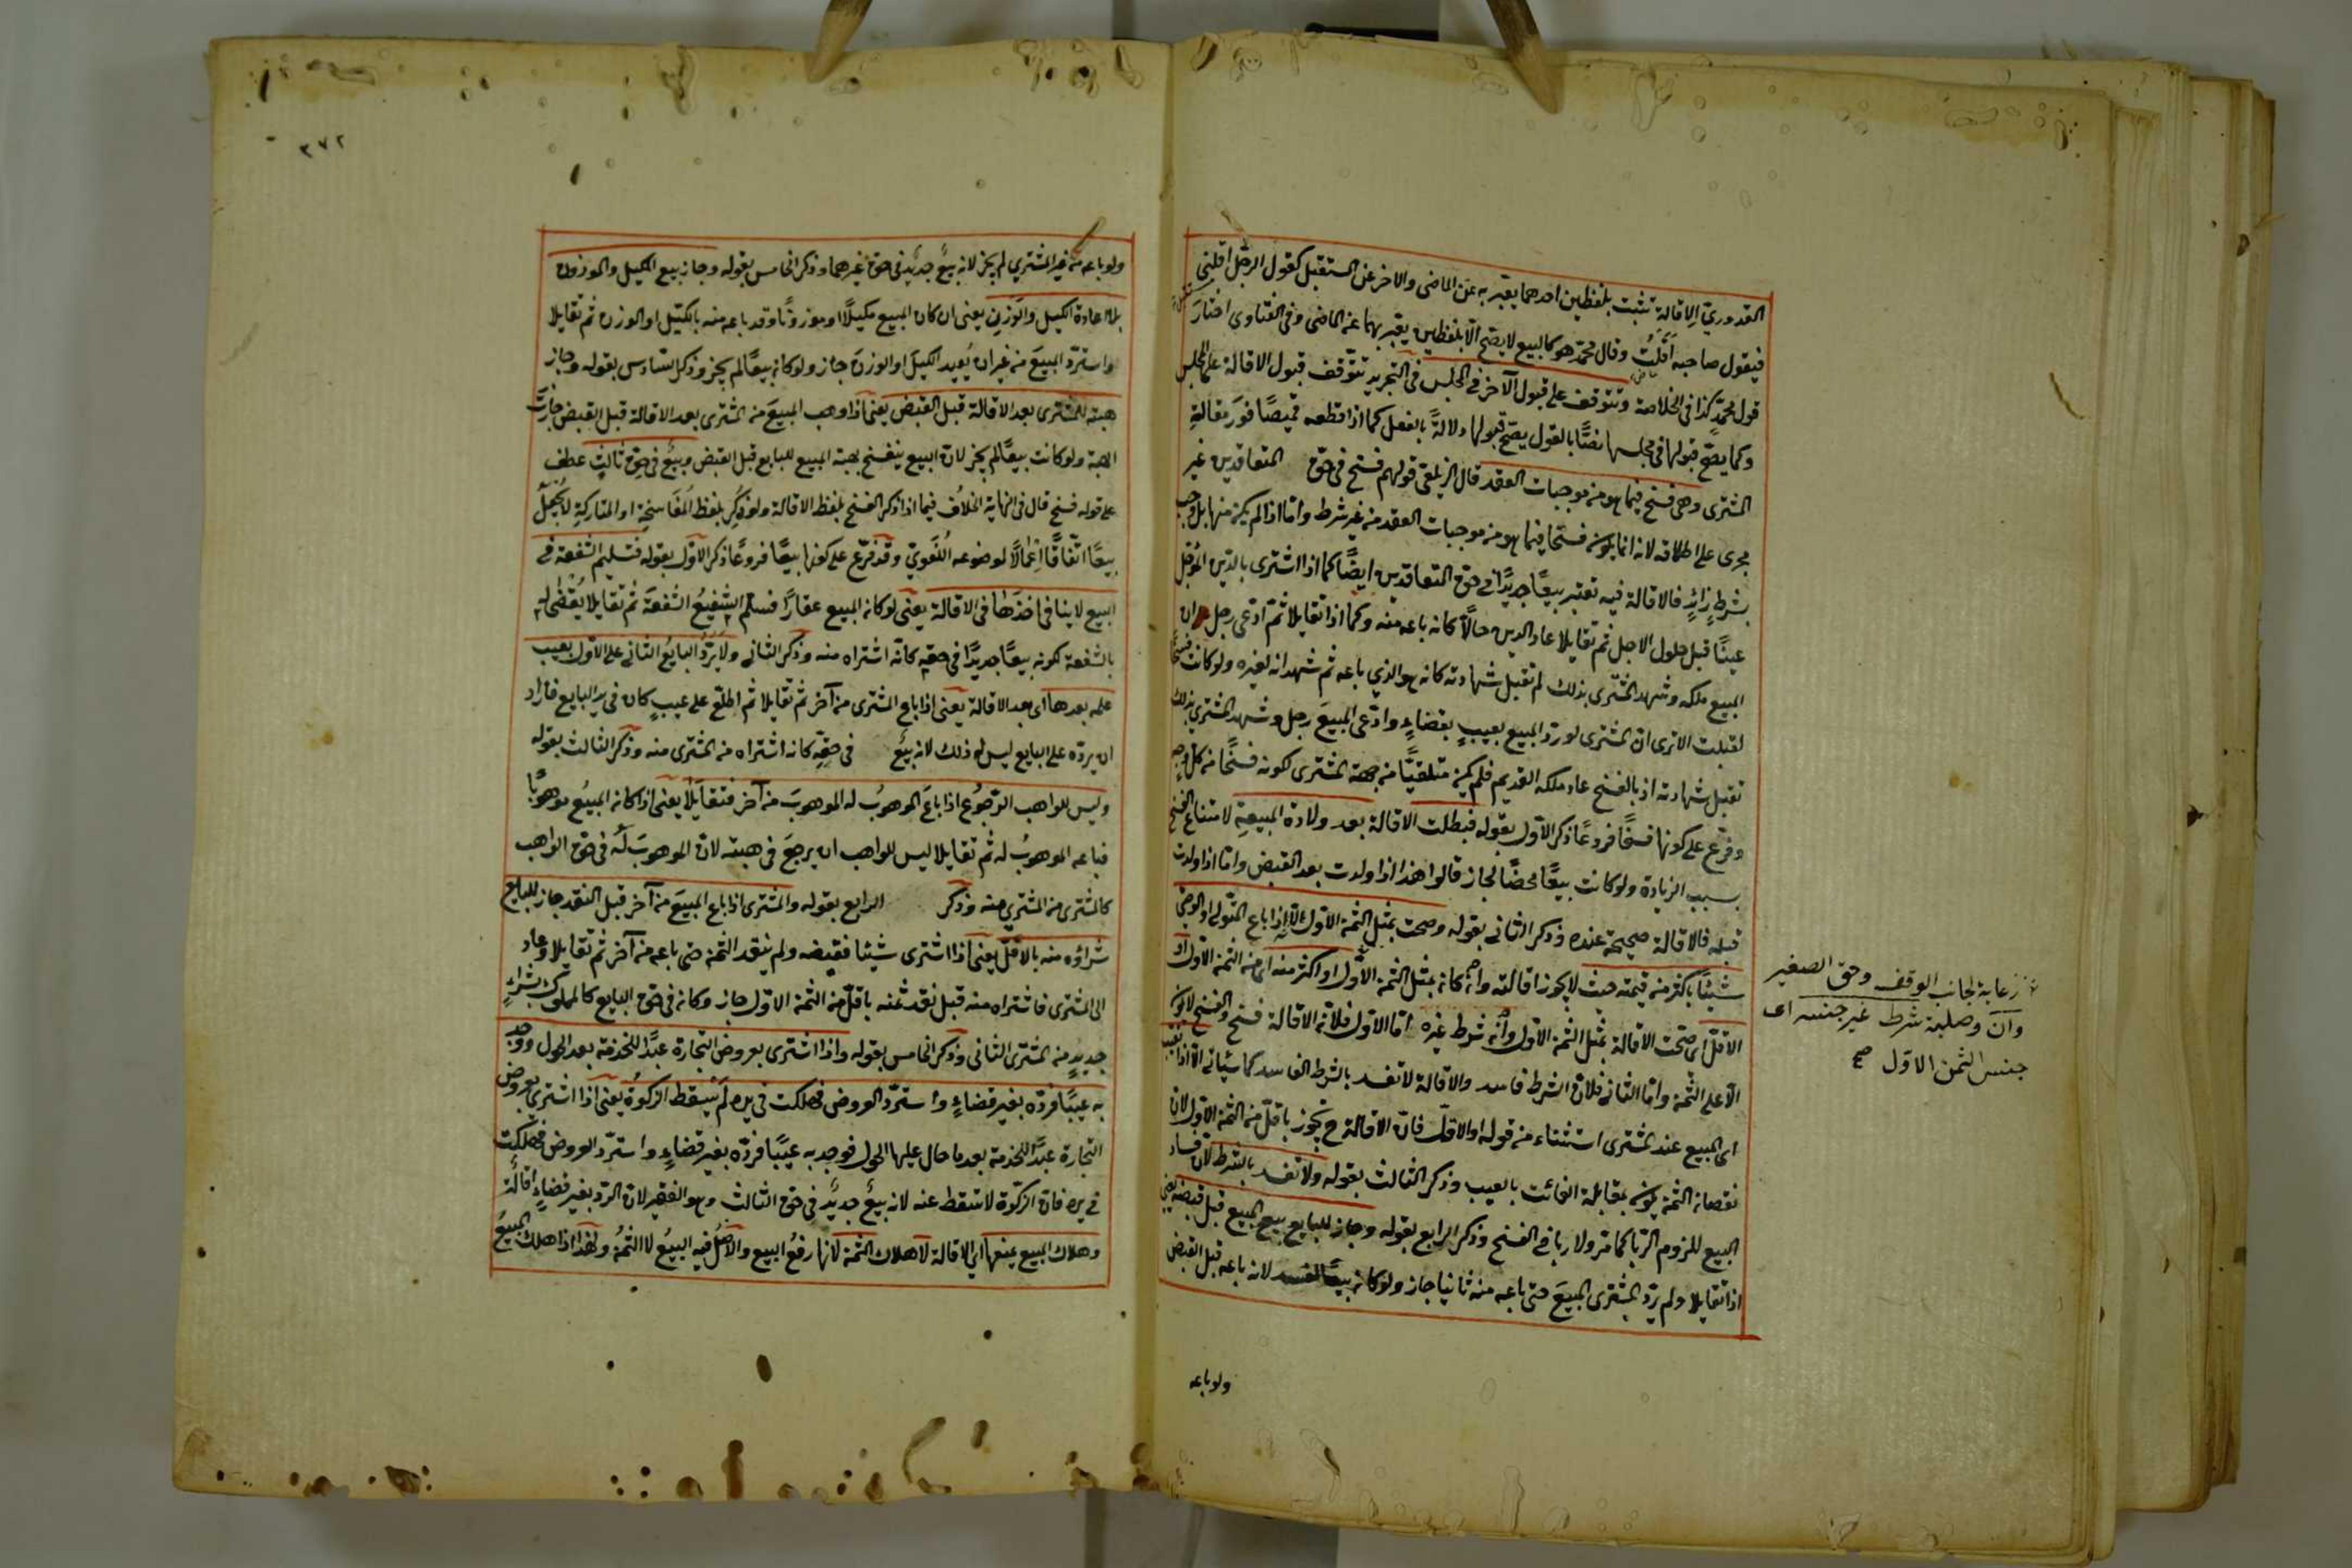 القدوري الاقالة تثبت بلفظين احدهما يعبر به عن الماضى والاخر عن المستقبل كقول الرجل اقلنى
فيقول صاحبه اَقَلْتُ وقال محمد هو كالبيع لا يصح الا بلفظين يعبر بهما عن الماضى وفى الفتاوى اختار
قول محمد كذا فى الخلاصة وتتوقف على قبول الآخر فى المجلس فى التجريد تتوقف قبول الاقالة على المجلس
وكما يصح قبولها فى مجلسها نصًّا بالقول يصح قبولها دلالةً بالفعل كما اذا قطعه قميصًا فور مقالةِ
المشترى وهى فسخ فيما هو من موجبات العقد قال الزيلعى قولهم فسخ فى حق المتعاقدين غير
مجرى على اطلاقه لانه انما يكون فسخا فيما هو من موجبات العقد من غير شرط واما اذا لم يكن منها بل وجب
بشرطٍ زائدٍ فالاقالة فيه تعتبر بيعًا جديدًا فى حق المتعاقدين ايضًا كما اذا اشترى بالدين المؤجل
عينًا قبل حلول الاجل ثم تقايلا عاد الدين حالًّا كانه باعه منه وكما اذا تقايلا ثم ادعى رجل ان
المبيع ملكه وشهد المشترى بذلك لم تقبل شهادته كانه هو الذي باعه ثم شهد انه لغيره ولو كانت فسخًا
لقبلت الا ترى ان المشترى لو رد المبيع بعيبٍ بقضاءٍ وادعى المبيعَ رجل وشهد المشترى بذلك
تقبل شهادته اذ بالفسخ عاد ملكه القديم فلم يكن متلقيًّا من جهة المشترى لكونه فسخًا من كل وجهٍ
وفرع على كونها فسخًا فروعًا ذكر الاول بقوله فبطلت الاقالة بعد ولادة المبيعةِ لامتناع الفسخ
بسبب الزيادة ولو كانت بيعًا محضًا لجاز قالوا هذا اذا ولدت بعد القبض واما اذا ولدت
قبله فالاقالة صحيحة عنده وذكر الثانى بقوله وصحت بمثل الثمن الاول الا اذا باع المتولى او الوصى
شيئًا باكثر من قيمته حيث لا يجوز اقالته وان كانه بمثل الثمن الاول او اكثر منه اى من الثمن الاول او
الاقل اى صحت الاقالة بمثل الثمن الاول وان شرط غيره اما الاول فلان الاقالة فسخ والفسخ لا يكون
الا على الثمن واما الثانى فلان الشرط فاسد والاقالة لا تفسد بالشرط الفاسد كما سيأتى الا اذا تعيب
اى المبيع عند المشترى استثناء من قوله او الاقل فان الاقالة ح تجوز باقل من الثمن الاول لان
نقصان الثمن يكون بمقابلة الفائت بالعيب وذكر الثالث بقوله ولا تفسد بالشرط لان فساد
البيع للزوم الربا كما مر ولا ربا فى الفسخ وذكر الرابع بقوله وجاز للبايع بيع المبيع قبل قبضه يعنى
اذا تقايلا ولم يرد المشترى المبيعَ حتى باعه منه ثانيا جاز ولو كانه بيعًا لفسد لانه باعه قبل القبض
رعاية لجانب الوقف وحق الصغير
وان وصلية شرط غير جنسه اى
جنس الثمن الاول صح
ولو باعه
٣٧٢
ولو باعه من غير المشترى لم يجز لانه بيع جديد فى حق غيرهما وذكر الخامس بقوله وجاز بيع المكيل والموزون
بلا اعادة الكيل والوزن يعنى ان كان المبيع مكيلًا او موزونًا وقد باعه منه بالكيل او الوزن ثم تقايلا
واسترد المبيعَ من غير ان يُعيد الكيلَ او الوزنَ جاز ولو كانه بيعًا لم يجز وذكر السادس بقوله وجاز
هبته للمشترى بعد الاقالة قبل القبض يعنى اذا وهب المبيعَ من المشترى بعد الاقالة قبل القبض جازت
الهبة ولو كانت بيعًا لم يجز لان البيع ينفسخ بهبة المبيع للبايع قبل القبض وبيع فى حق ثالثٍ عطف
على قوله فسخ قال فى النهاية الخلاف فيما اذا ذكر الفسخ بلفظ الاقالة ولو ذُكِر بلفظ المُفاسخةِ او المتاركةِ لا يُجعلُ
بيعًا اتفاقًا اِعْمالًا لموضوعه اللغوي وقد فرع على كونها بيعًا فروعًا ذكر الاول بقوله فتسليم الشفعة فى
البيع لا ينافى اخذَها فى الاقالة يعنى لو كانه المبيع عقارًا فسلم الشفيعُ الشفعةَ ثم تقايلا يُقضى له
بالشفعة لكونه بيعًا جديدًا فى حقه كانه اشتراه منه وذكر الثانى ولا يَرُدُّ البايعُ الثانى على الاول بعيب
علمه بعدها اى بعد الاقالة يعنى اذا باع المشترى من آخر ثم تقايلا ثم اطلع على عيبٍ كان فى يد البايع فاراد
ان يرده على البايع ليس له ذلك لانه بيعٌ فى حقِّه كانه اشتراه من المشترى منه وذكر الثالث بقوله
وليس للواهب الرجوعُ اذا باعَ الموهوبُ له الموهوبَ من آخر فتقايلا يعنى اذا كانه المبيعُ موهوبًا
فباعه الموهوبُ له ثم تقايلا ليس للواهب ان يرجعَ فى هبته لان الموهوبَ له فى حق الواهب
كالمشترى من المشترى منه وذكر الرابع بقوله والمشترى اذا باع المبيعَ من آخر قبل النقد جاز للبايع
شراؤه منه بالاقل يعنى اذا اشترى شيئا فقبضه ولم ينقد الثمن حتى باعه من آخر ثم تقايلا وعاد
الى المشترى فاشتراه منه قبل نقد ثمنه باقل من الثمن الاول جاز وكانه فى حق البايع كالمملوك بشراءٍ
جديدٍ من المشترى الثانى وذكر الخامس بقوله واذا اشترى بعروض التجارة عبدًا للخدمة بعد الحول ووجد
به عيبًا فرده بغير قضاءٍ واسترد العروض فهلكت فى يده لم يَسقط الزكوةُ يعنى اذا اشترى بعروض
التجارة عبدًا للخدمة بعد ما حال عليها الحول فوجد به عيبًا فرده بغير قضاءٍ واسترد العروض فهلكت
فى يده فان الزكوة لا تسقط عنه لانه بيعٌ جديدٌ فى حق الثالث وهو الفقير لان الرد بغير قضاءٍ اقالةٌ
وهلاك المبيع يمنعها اى الاقالة لا هلاك الثمن لانها رفعُ البيع والاصلُ فيه المبيعُ لا الثمنُ ولهذا اذا هلك المبيعُ